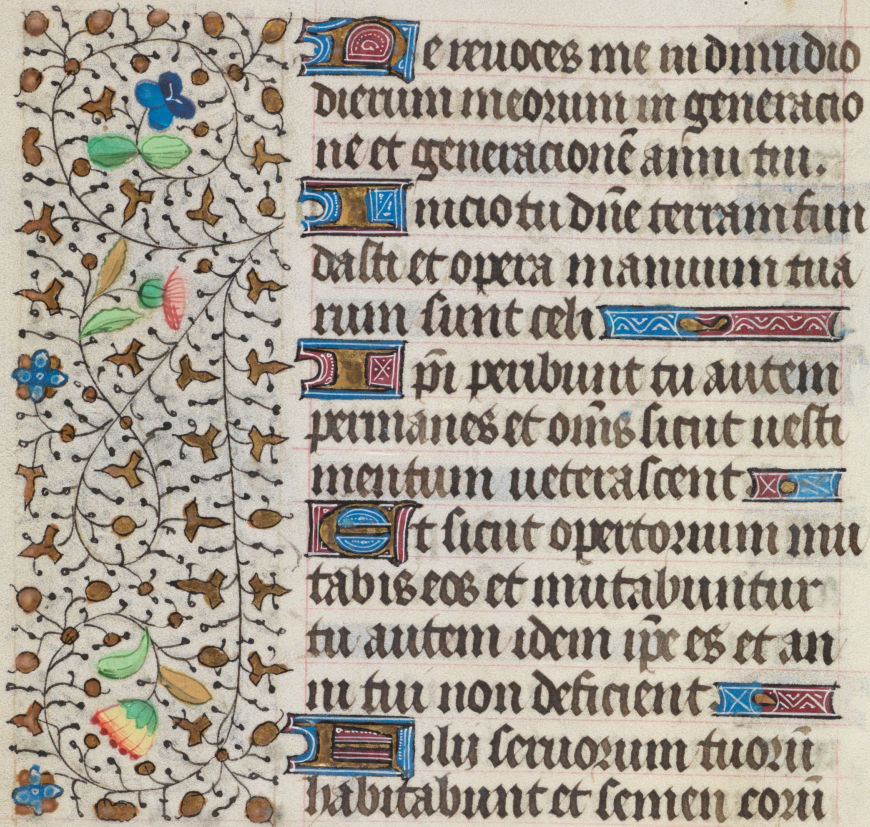 Ne reuoces me in dimidio
dierum meorum in generacio
ne et generacionē anni tui.
Inicio tu dn̄e terram fun
dasti et opera manuum tua
rum sunt celi
Ip̄i peribunt tu autem
permanes et om̄s sicut uesti
mentum ueterascent
Et sicut opertorium mu
tabis eos et mutabuntur
tu autem idem ip̄e es et an
ni tui non deficient
Filij seruorum tuorū
habitabunt et semen eorū